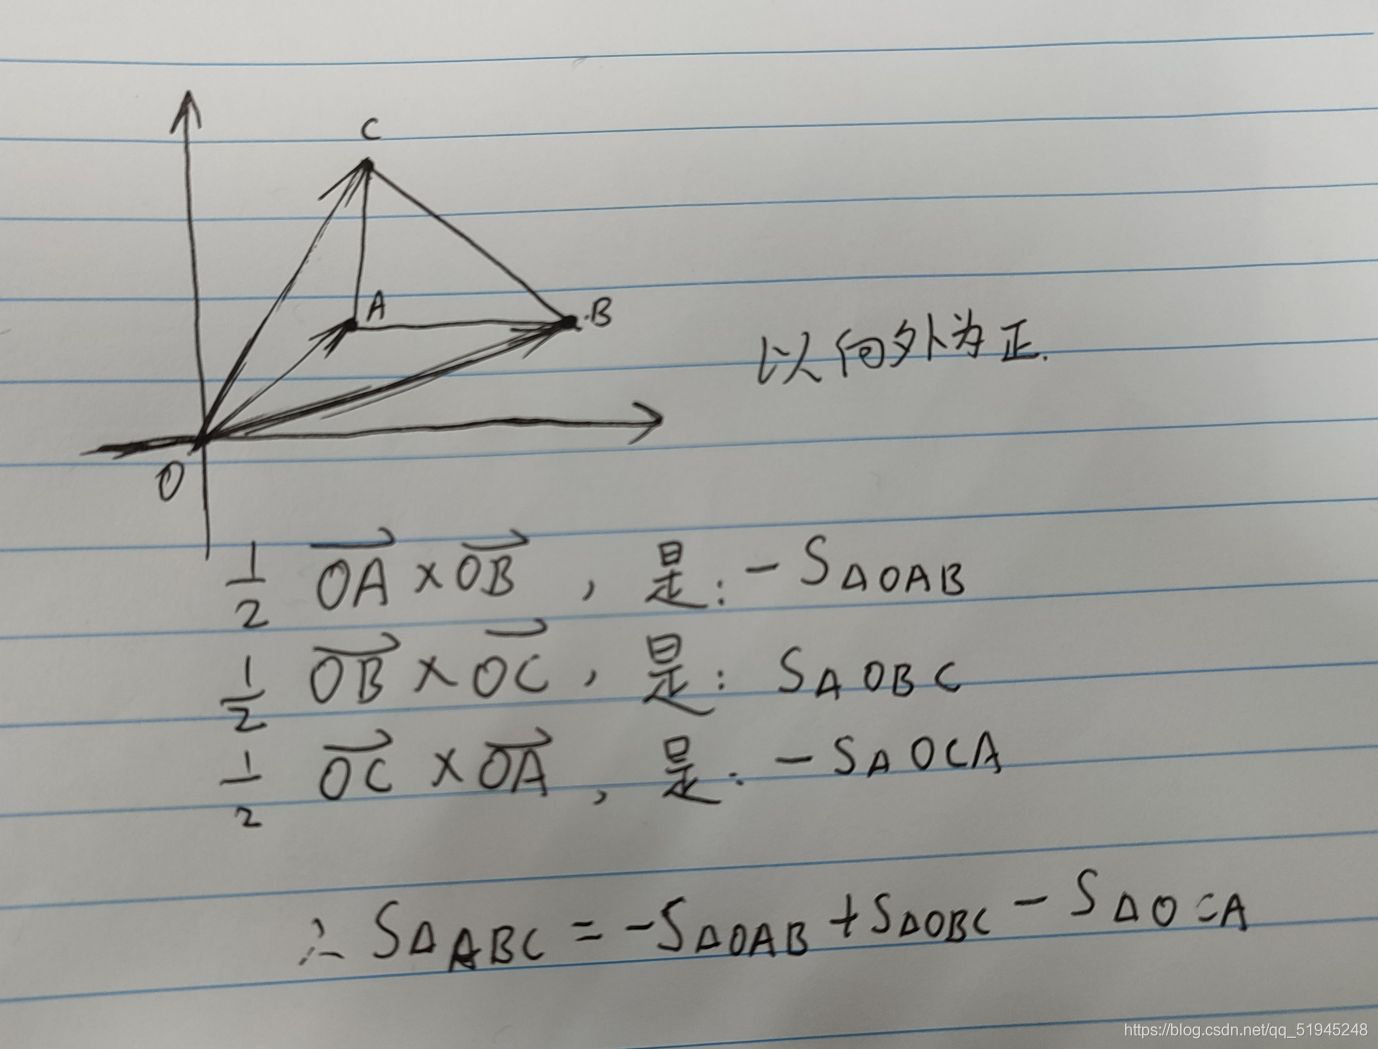 C
A
B
以向外为正.
O
1/2 OA × OB , 是: - S△OAB
1/2 OB × OC , 是: S△OBC
1/2 OC × OA , 是: - S△OCA
∴ S△ABC = -S△OAB + S△OBC - S△OCA
https://blog.csdn.net/qq_51945248